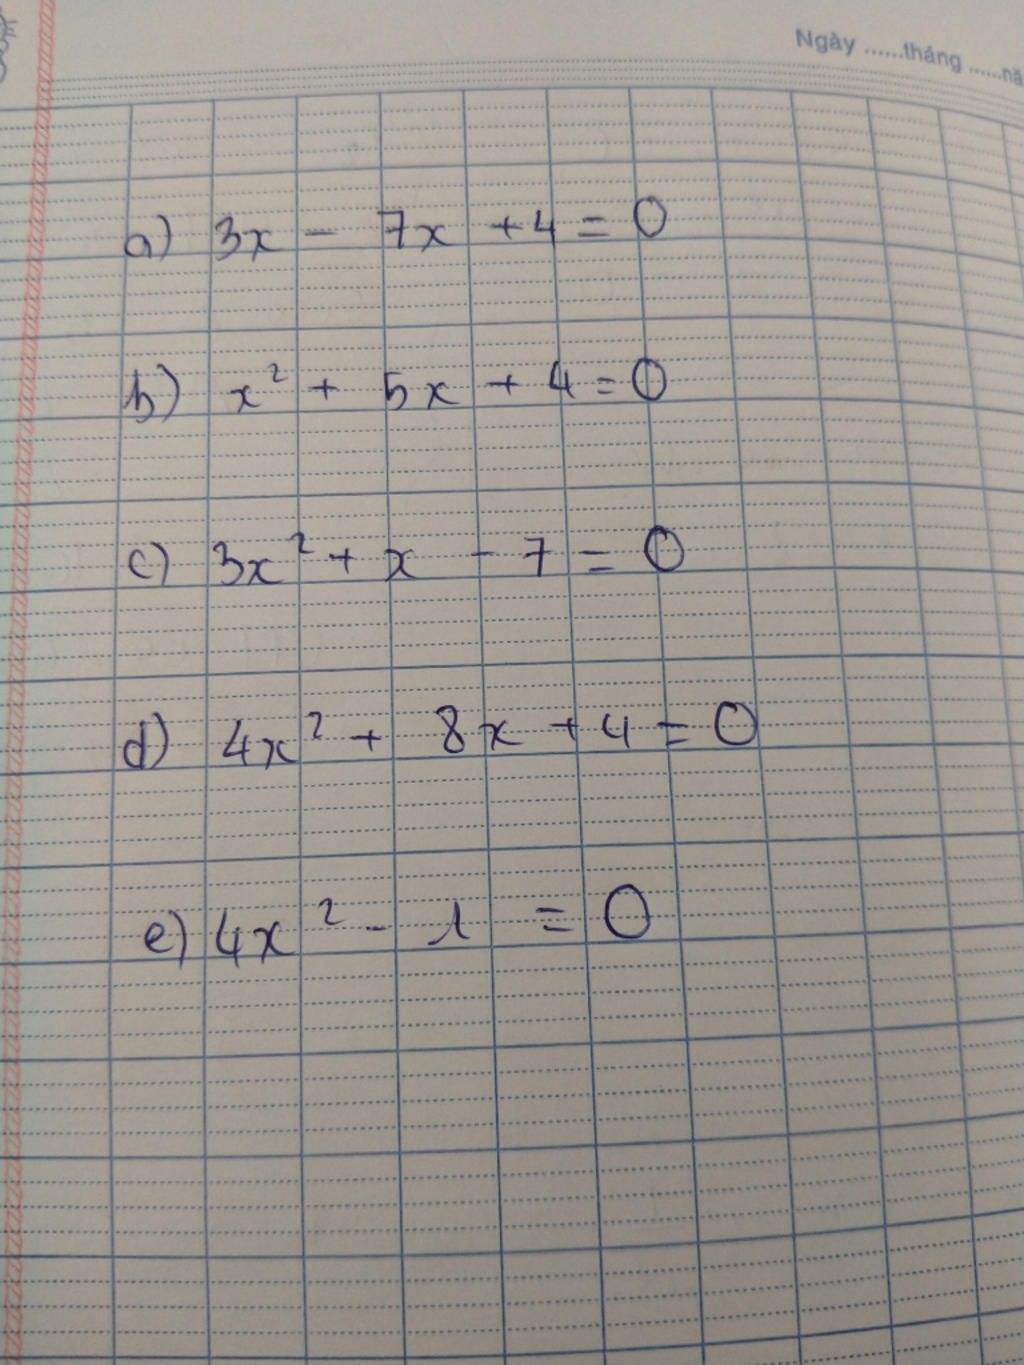 Ngày ......tháng ......nă
a) 3x - 7x + 4 = 0
b) x² + 5x + 4 = 0
c) 3x² + x - 7 = 0
d) 4x² + 8x + 4 = 0
e) 4x² - 1 = 0